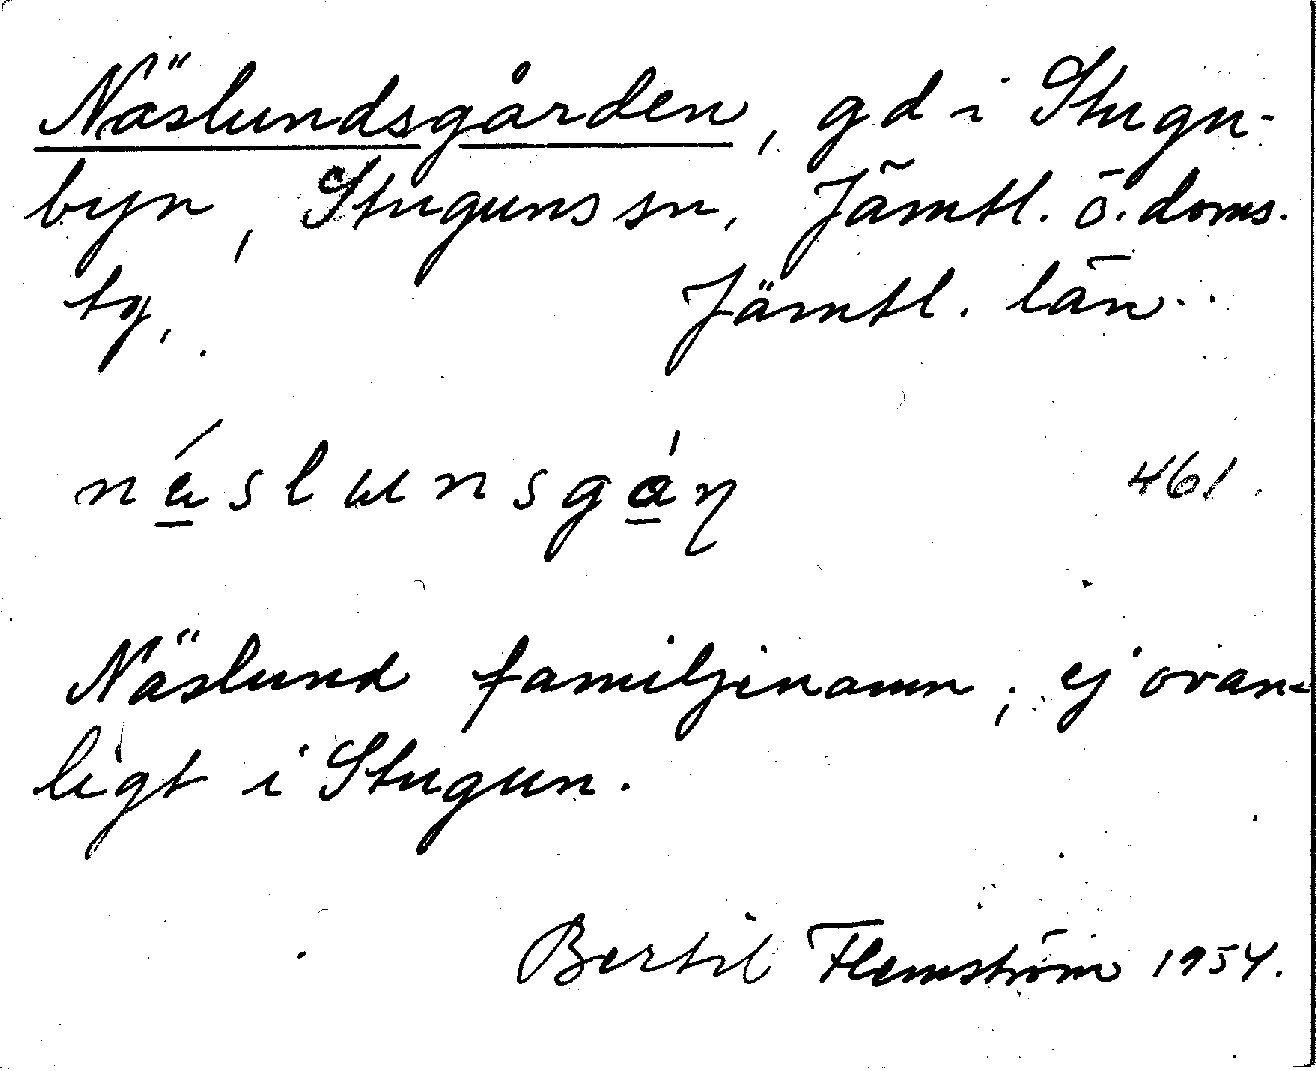 Näslundsgården, gd i Stugu-
byn, Stuguns sn, Jämtl. ö. doms.
tg, Jämtl. län
461
Näslund familjenamn, ej ovan-
ligt i Stugun.
Bertil Flemström 1954.